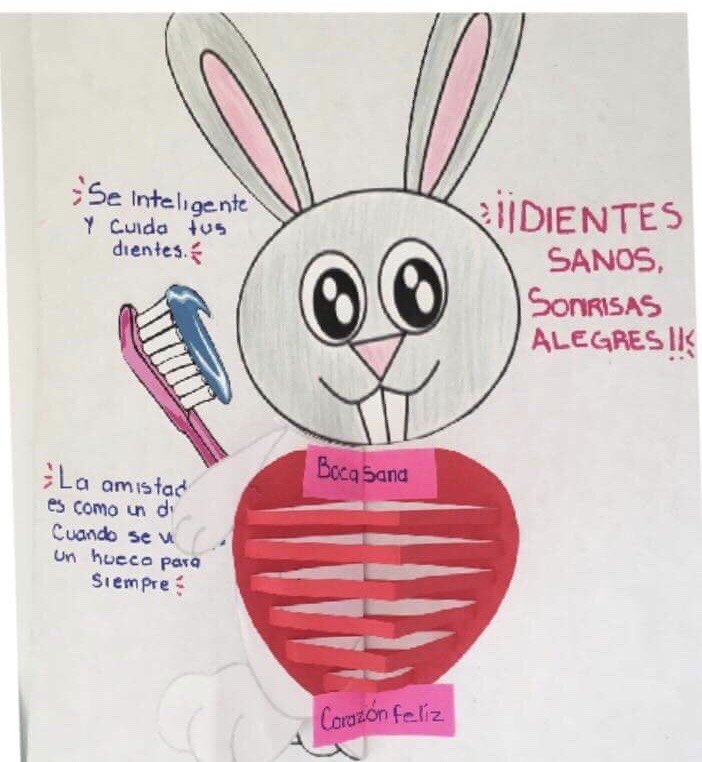 Se Inteligente
Y Cuida tus
dientes.
¡¡DIENTES
SANOS,
SONRISAS
ALEGRES!!
La amistad
es como un
Cuando se
un hueco para
Siempre
Boca Sana
Corazón feliz